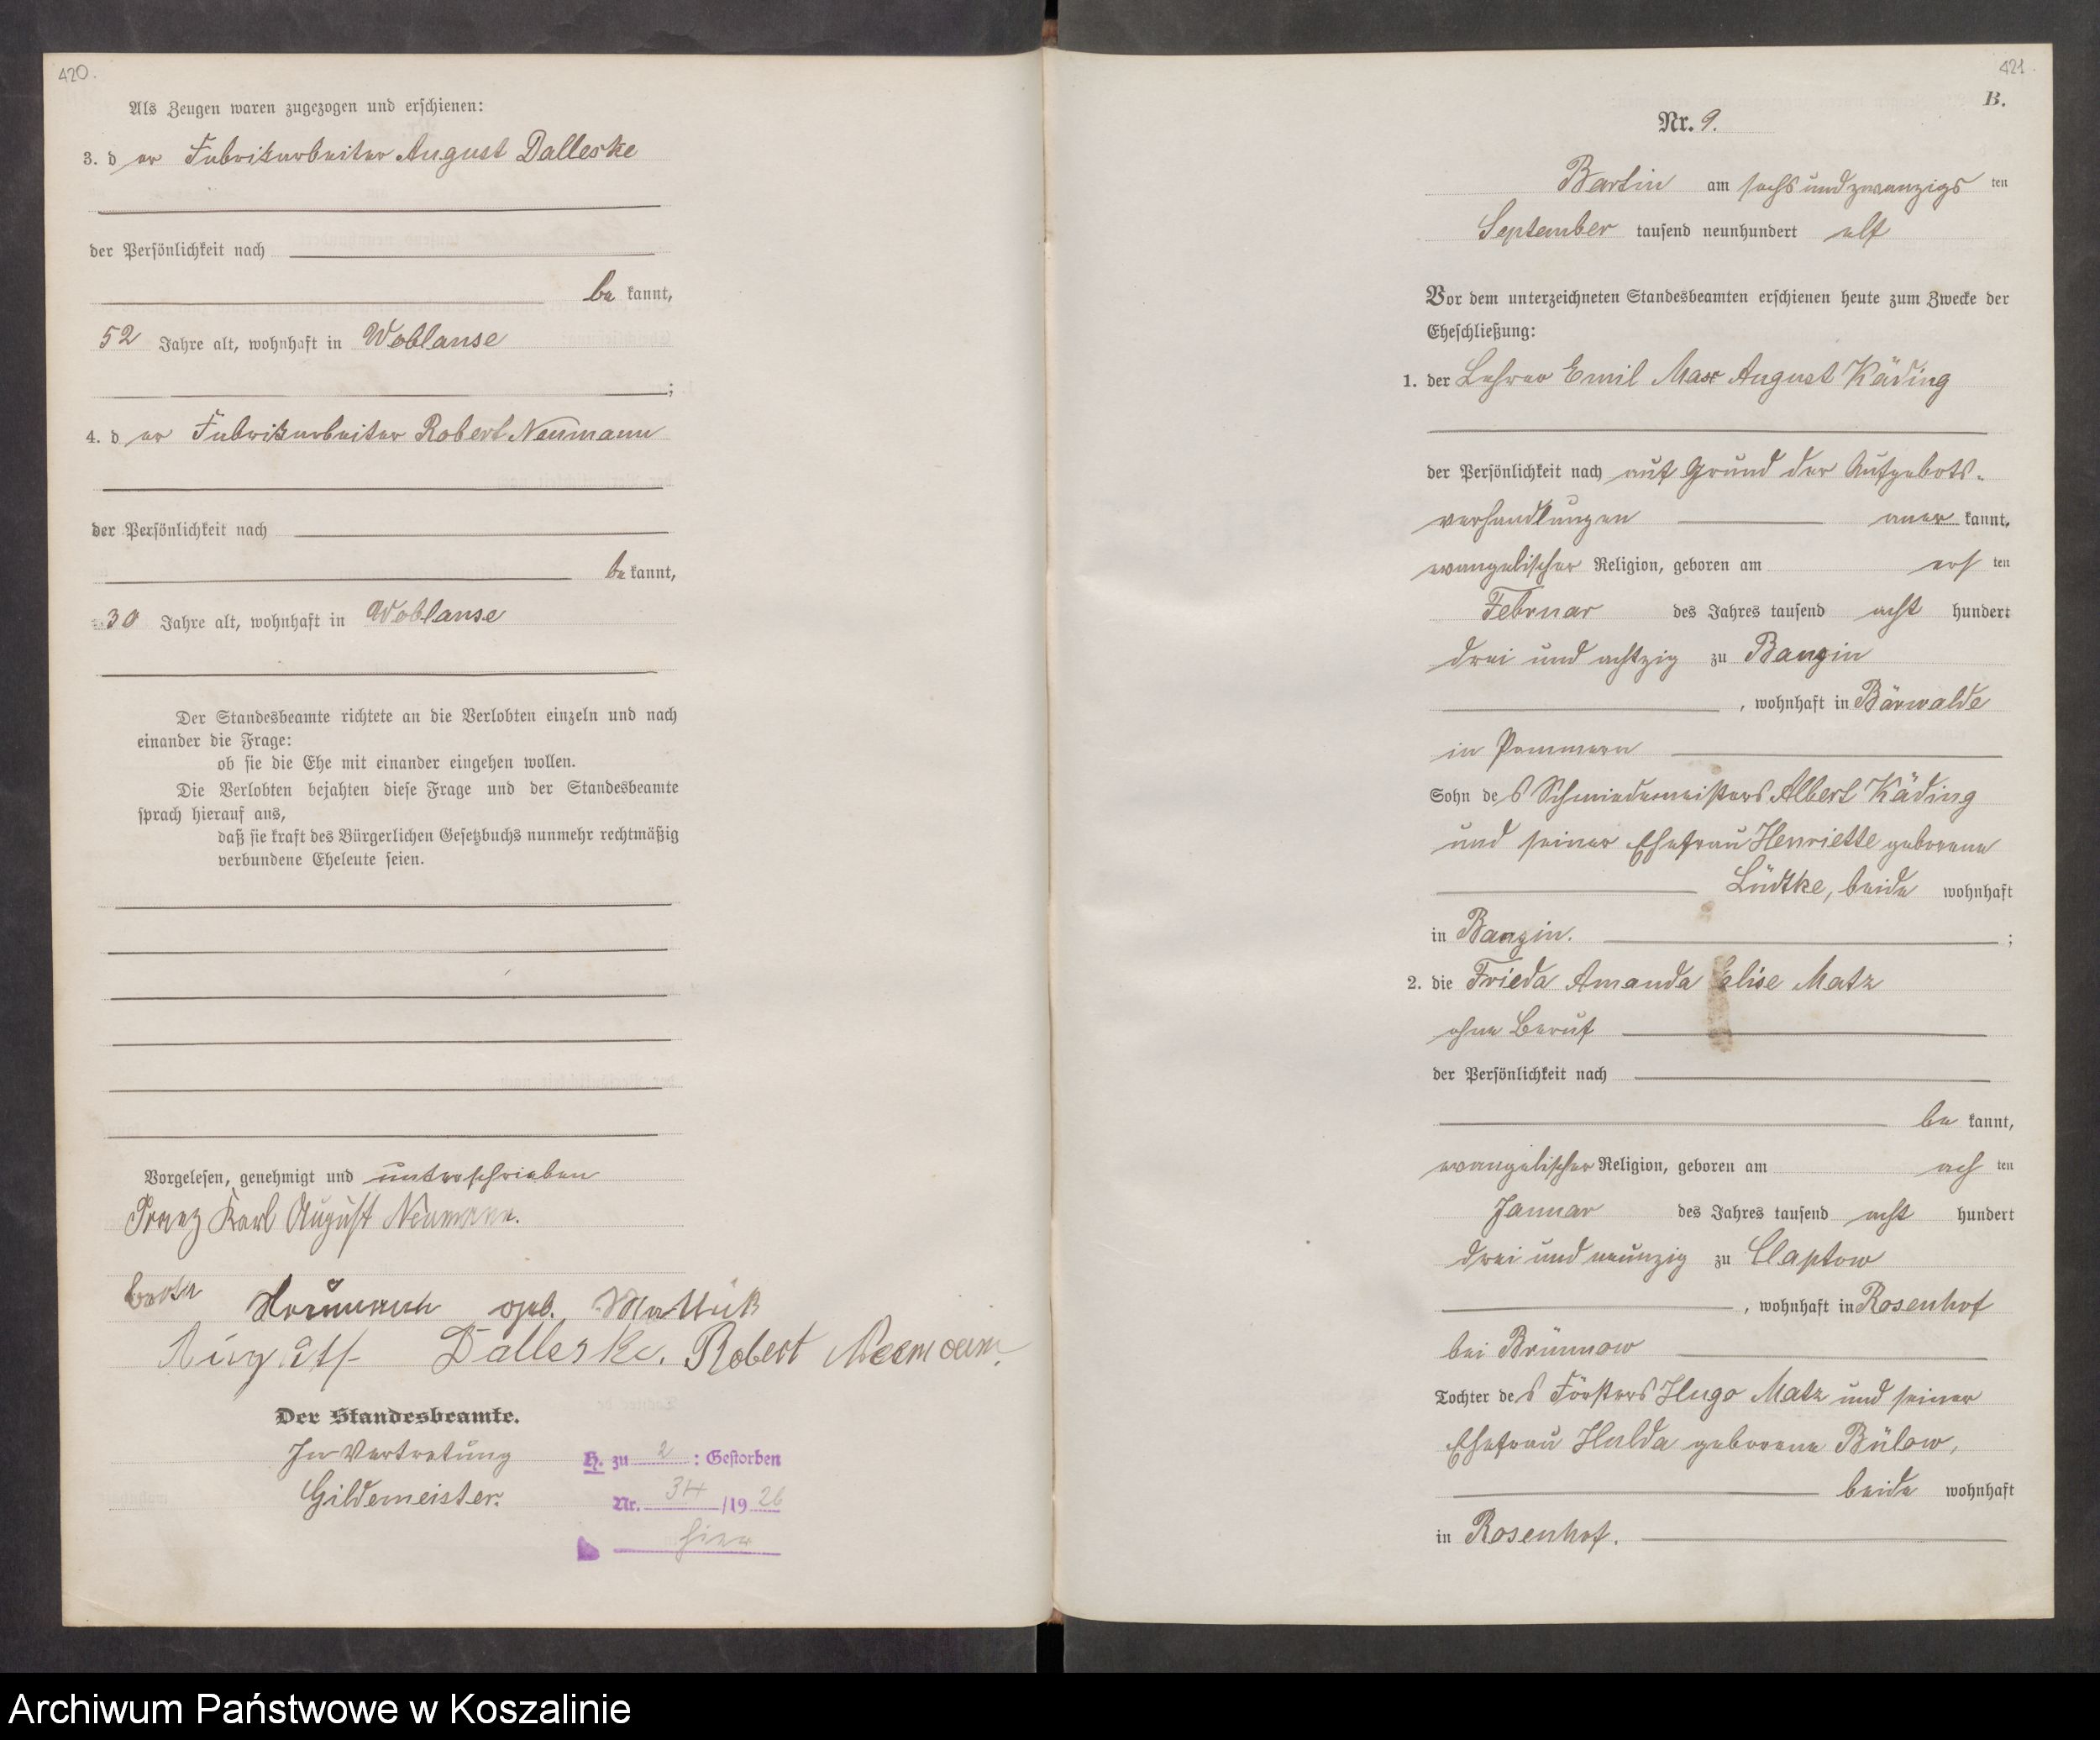 420.
Als Zeugen waren zugezogen und erschienen:
3. d er Fabrikarbeiter August Dalleske
der Persönlichkeit nach
be kannt,
52 Jahre alt, wohnhaft in Woblanse
;
4. d er Fabrikarbeiter Robert Neumann
der Persönlichkeit nach
be kannt,
30 Jahre alt, wohnhaft in Woblanse
Der Standesbeamte richtete an die Verlobten einzeln und nach
einander die Frage:
ob sie die Ehe mit einander eingehen wollen.
Die Verlobten bejahten diese Frage und der Standesbeamte
sprach hierauf aus,
daß sie kraft des Bürgerlichen Gesetzbuchs nunmehr rechtmäßig
verbundene Eheleute seien.
Vorgelesen, genehmigt und unterschrieben
Franz Karl August Neumann.
Neumann geb.
August Dalleske. Robert Neumann.
Der Standesbeamte.
In Vertretung
Gildemeister.
H. zu 2 : Gestorben
Nr. 34 /19 26
hier
421.
B.
Nr. 9.
Bartin am sechsundzwanzigs ten
September tausend neunhundert elf
Vor dem unterzeichneten Standesbeamten erschienen heute zum Zwecke der
Eheschließung:
1. der Lehrer Emil Max August Käding
der Persönlichkeit nach auf Grund der Aufgebots-
verhandlungen aner kannt,
evangelischer Religion, geboren am ers ten
Februar des Jahres tausend acht hundert
drei und achtzig zu Banzin
, wohnhaft in Bärwalde
in Pommern
Sohn de s Schmiedemeisters Albert Käding
und seiner Ehefrau Henriette geborene
Lüdtke, beide wohnhaft
in Banzin. ;
2. die Frieda Amanda Elise Matz
ohne Beruf
der Persönlichkeit nach
be kannt,
evangelischer Religion, geboren am ach ten
Januar des Jahres tausend acht hundert
drei und neunzig zu Claptow
, wohnhaft in Rosenhof
bei Brünnow
Tochter de s Försters Hugo Matz und seiner
Ehefrau Hulda geborene Bülow,
beide wohnhaft
in Rosenhof.
Archiwum Państwowe w Koszalinie